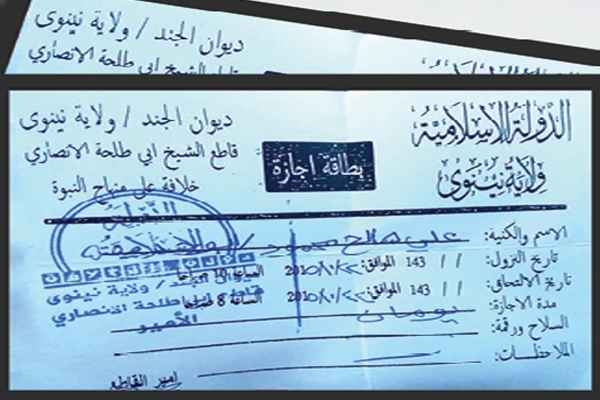 ديوان الجند / ولاية نينوى
قاطع الشيخ ابي طلحة الانصاري
الدولة الإسلامية
ولاية نينوى
بطاقة اجازة
ديوان الجند / ولاية نينوى
قاطع الشيخ ابي طلحة الانصاري
خلافة على منهاج النبوة
الاسم والكنية: علي صالح
تاريخ النزول: / / 143 الموافق: الساعة 10 صباحا
تاريخ الالتحاق: / / 143 الموافق: الساعة 8 صباحا
مدة الاجازة: يومان
السلاح ورقمة:
الملاحظات:
امير القاطع
ديوان الجند / ولاية نينوى
قاطع ابي طلحة الانصاري
الأمير